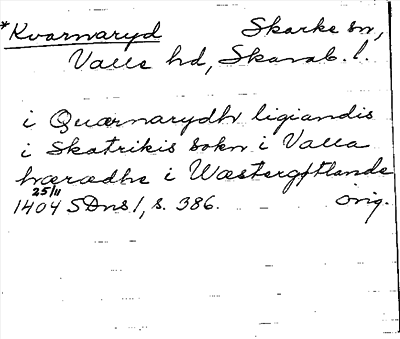 *Kvarnaryd Skarke sn,
Valle hd, Skarab. l.
i Quarnarydh ligiandis
i Skatrikis sokn i Valla
hæradhe i Wæstergøtlande
25/11
1404 SDns 1, s. 386. orig.